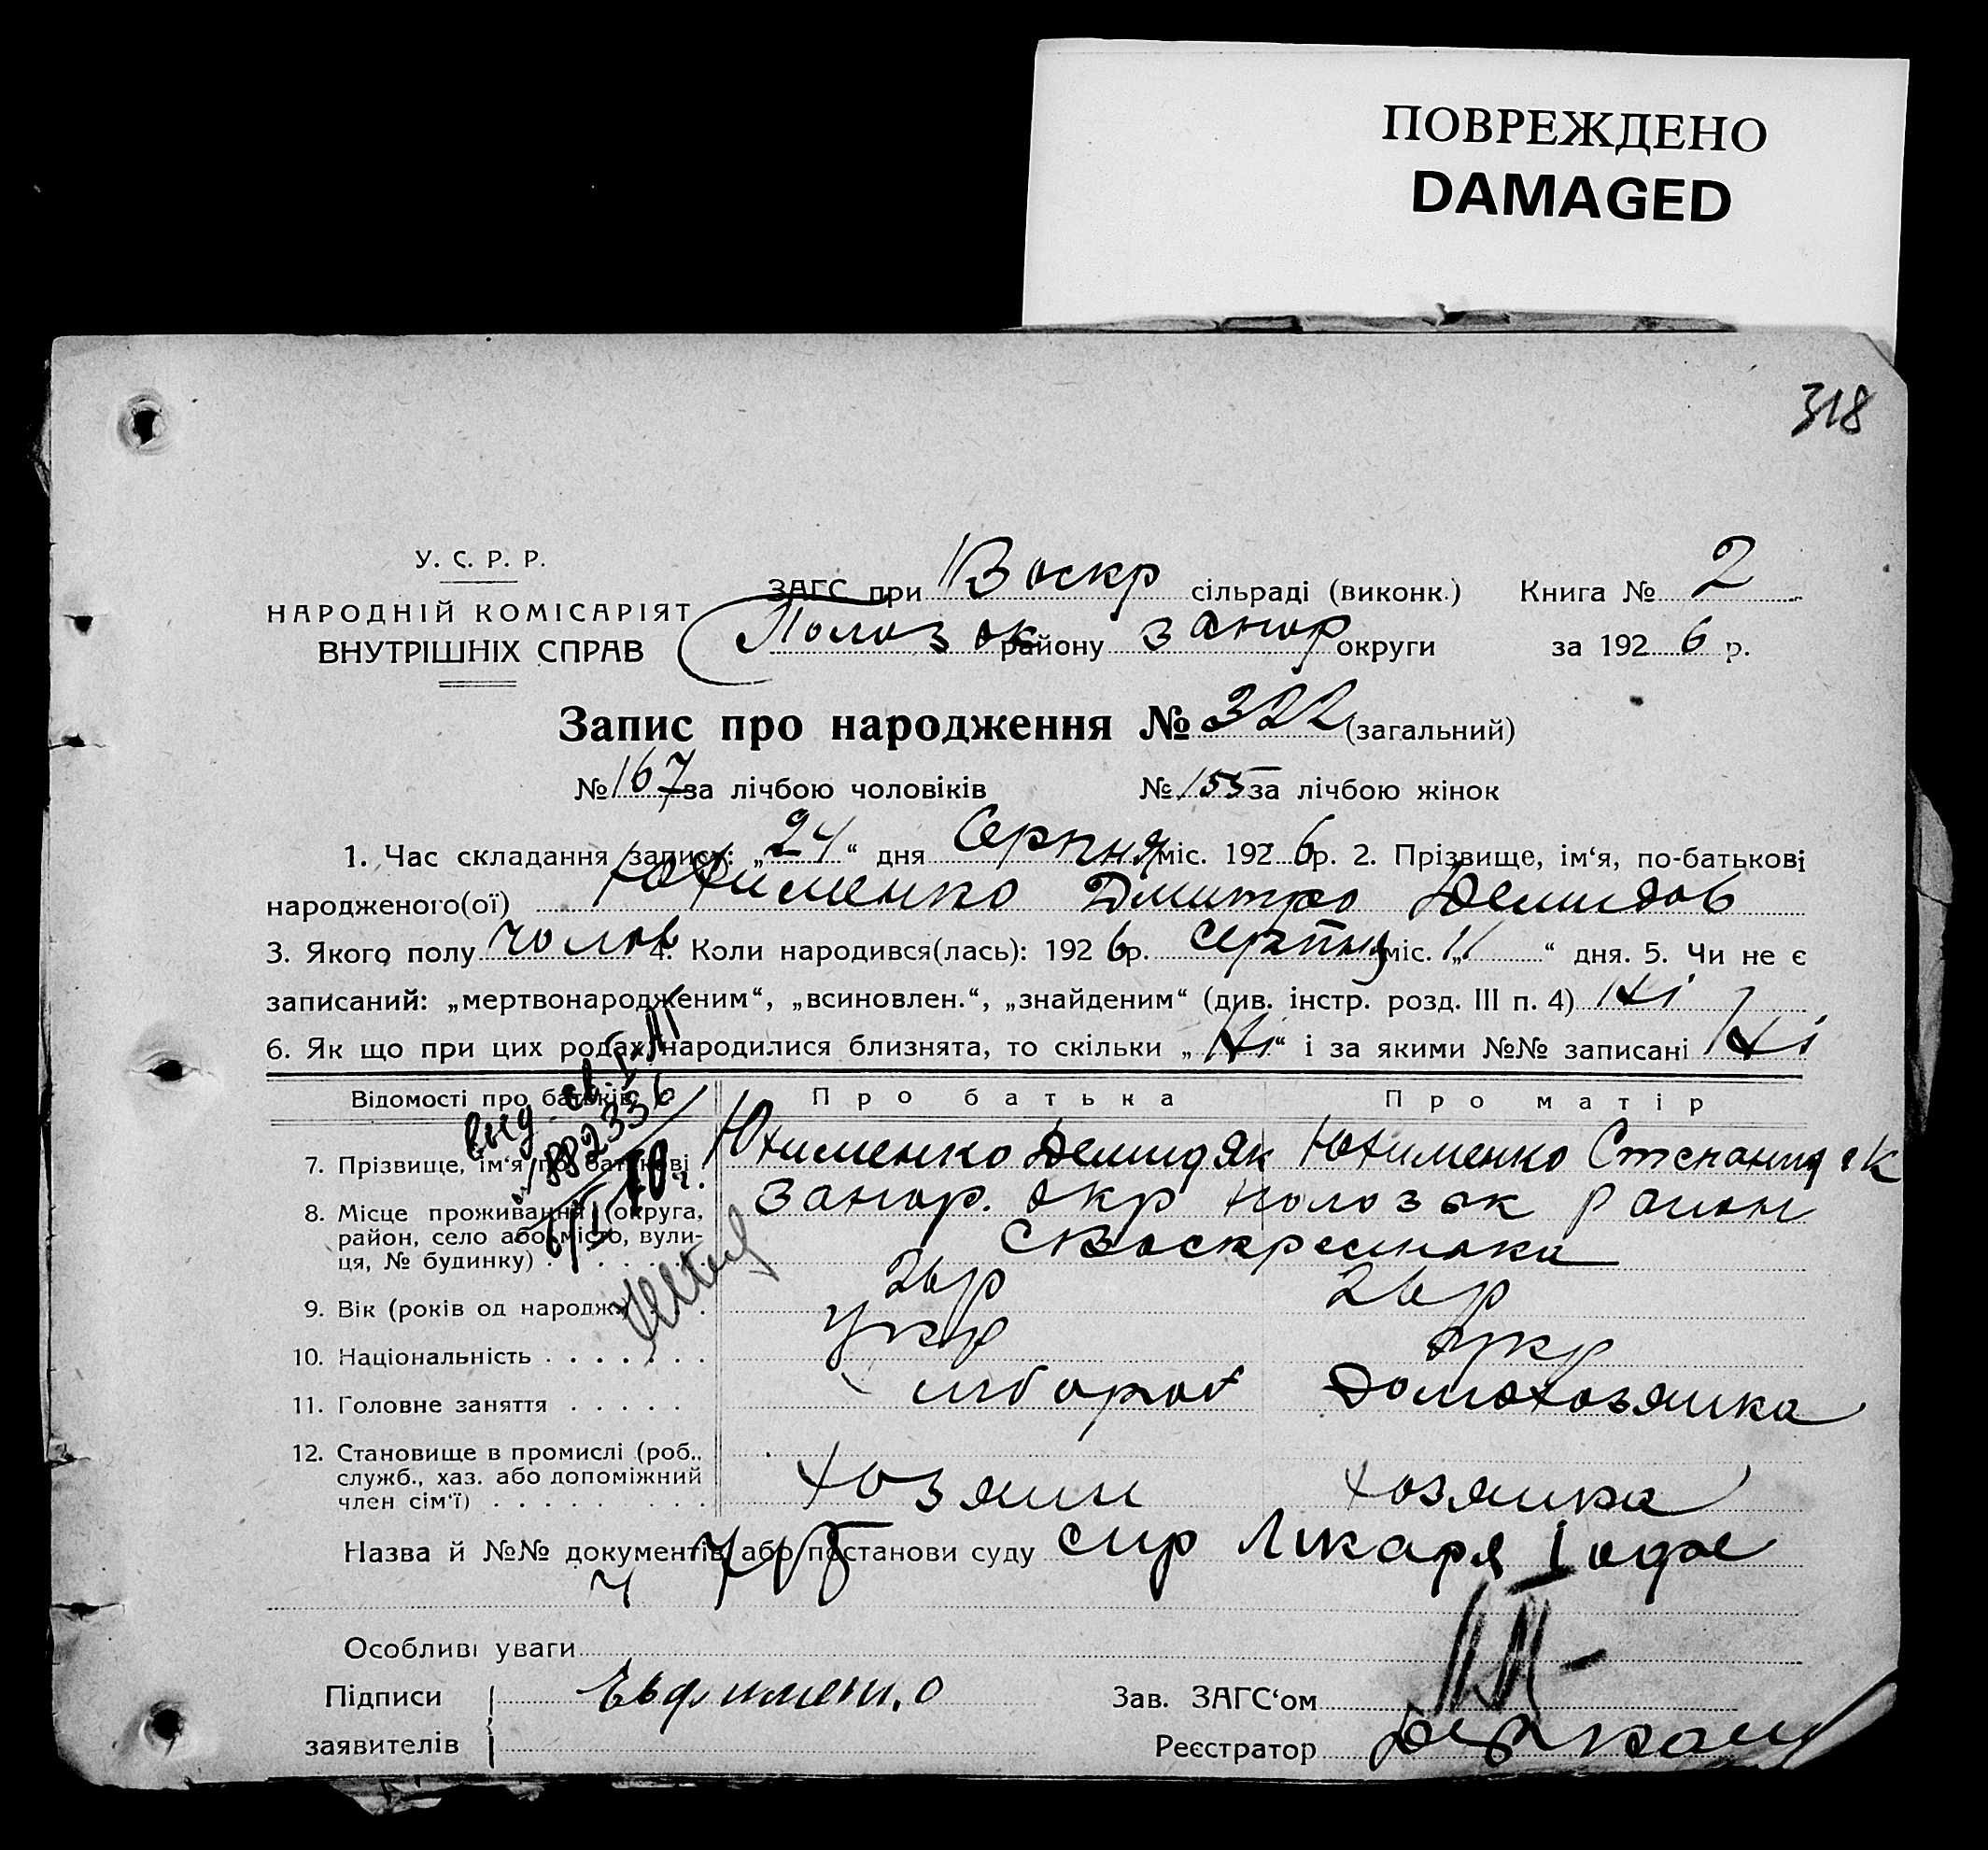 ПОВРЕЖДЕНО
DAMAGED
318
У. С. Р. Р.
НАРОДНІЙ КОМІСАРІЯТ
ВНУТРІШНІХ СПРАВ
ЗАГС при Воскр сільраді (виконк.) Книга № 2
Полозьк району Запор округи за 1926 р.
Запис про народження № 322 (загальний)
№ 167 за лічбою чоловіків № 155 за лічбою жінок
1. Час складання запису: „24“ дня Серпня міс. 1926 р. 2. Прізвище, ім‘я, по-батькові
народженого(ої) Юхименко Дмитро Демидов
3. Якого полу чолов 4. Коли народився(лась): 1926 р. серпня міс. „11“ дня. 5. Чи не є
записаний: „мертвонародженим“, „всиновлен.“, „знайденим“ (див. інстр. розд. III п. 4) Ні
6. Як що при цих родах народилися близнята, то скільки „Ні“ і за якими №№ записані Ні
Відомості про батьків Про батька Про матір
7. Прізвище, ім‘я по батькові Юхименко Демид Як Юхименко Степанид
8. Місце проживання (округа, район, село або місто, вули-ця, № будинку) Запор. окр Полозьк район
с Воскресенка
9. Вік (років од народж.) 26 р 26 р
10. Національність укр укр
11. Головне заняття хлібороб Домохозяйка
12. Становище в промислі (роб., служб., хаз. або допоміжний член сім‘ї) хозяин хозяйка
Назва й №№ документів або постанови суду спр Лікаря Іофе
Особливі уваги
Підписи Евфименко Зав. ЗАГС‘ом
заявителів Реєстратор